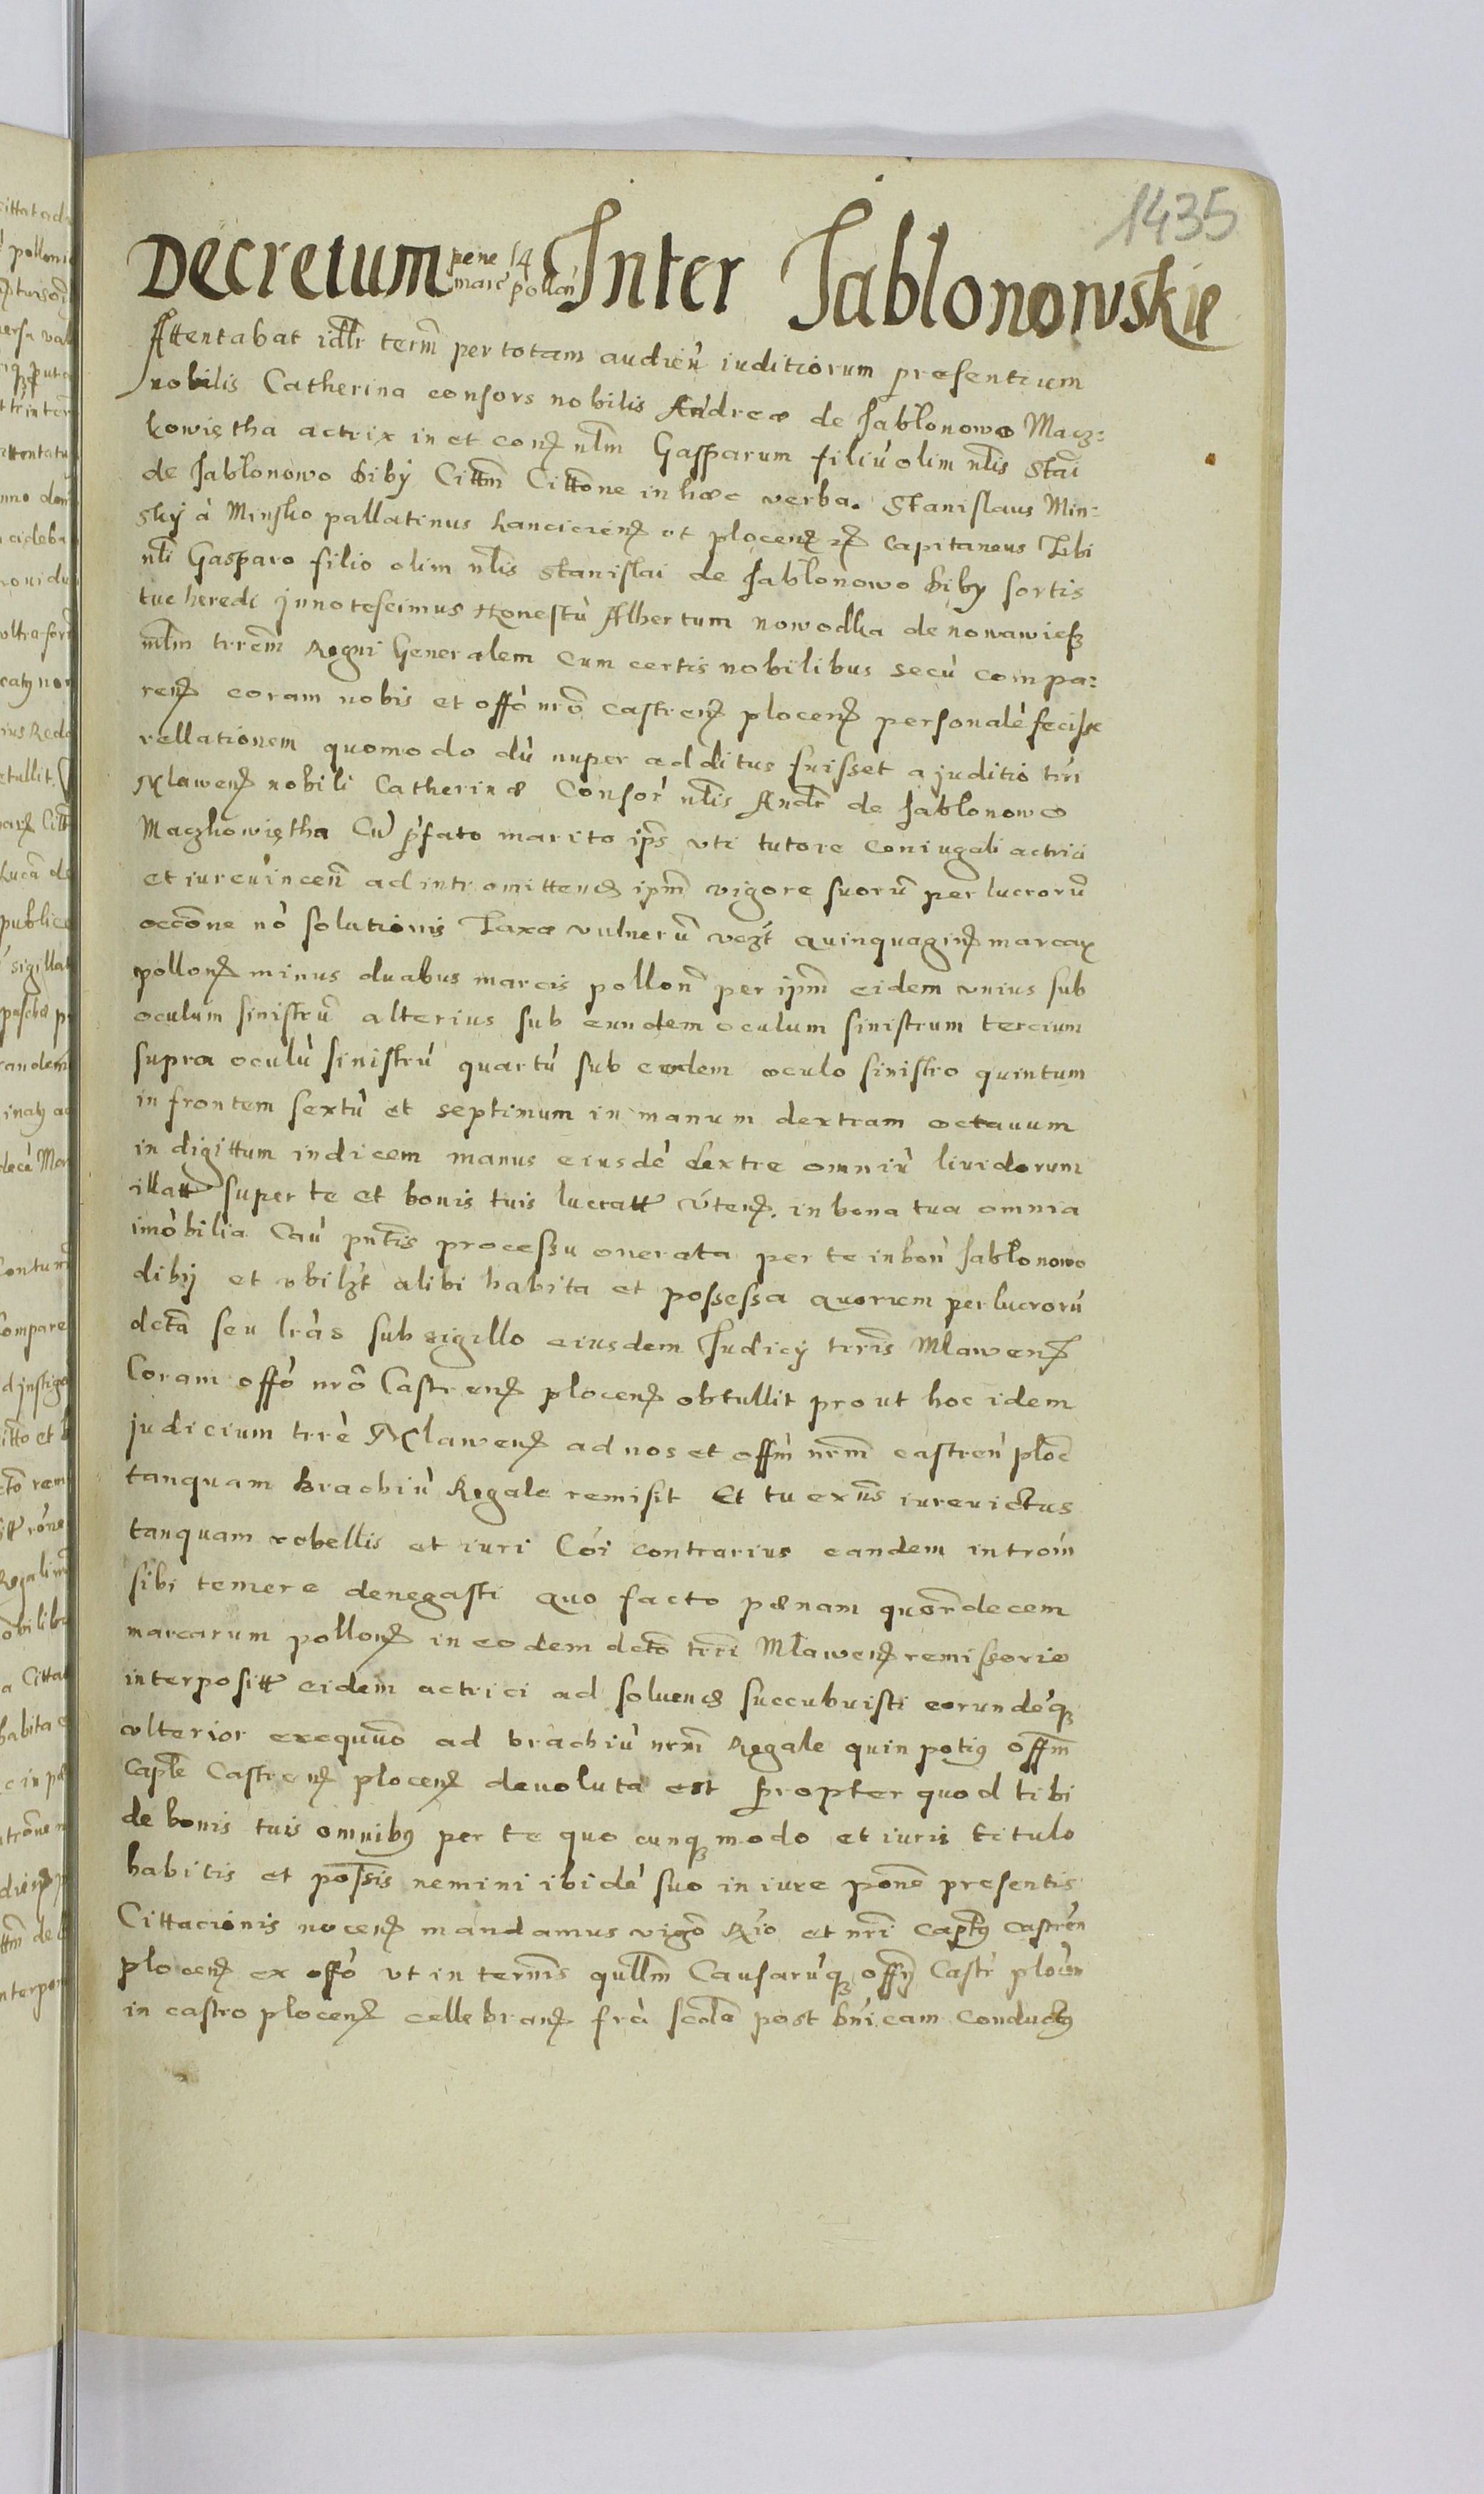 1435
Decretum pene 14 marc pollon Inter Jablonowskie
Attentabat idllr term per totam audien iuditiorum presentium
nobilis Catherina consors nobilis Andreæ de Jablonowo Macz:
kowiętha actrix in et con nlm Gasparum filiu olim nlis Stai
de Jablonowo Diby Cittm Cittone in hæc verba. Stanislaus Min:
sky à Minsko pallatinus Lancicien et plocen capitaneus Tibi
nli Gasparo filio olim nlis Stanislai de Jablonowo Diby sortis
tue heredi Innotescimus Honestu Albertum nowodka de nowawiesz
mlm trrem Regni Generalem Cum certis nobilibus secu compa:
ren coram nobis et offo nro castren plocen personale fecisse
rellationem quomodo du nuper additus fuisset a juditio tri
Mlawen nobili Catherinæ Consor nlis Andr de Jablonowo
Maczkowiętha Cu pfato marito ips uti tutore coniugali actrici
et iureuincen ad intromitten ipm vigore suoru perlucroru
occone no solutionis Taxæ vulneru vezt quinquagin marcar
pollon minus duabus marcis pollon per ipm eidem unius sub
oculum sinistru alterius sub eundem oculum sinistrum tercium
supra oculu sinistru quartu sub eodem oculo sinistro quintum
in frontem sextu et septimum in manum dextram octauum
in digittum indicem manus eiusde dextre omniu liuidorum
illatt super te et bonis tuis lucratt uten. in bona tua omnia
imobilia Cau pntis processu onerata per te in bon Jablonowo
diby et ubilzt alibi habita et possessa quorum perlucroru
dcta seu lras sub sigillo eiusdem Judicy trris Mlawen
Coram offo nro Castren plocen obtullit prout hoc idem
judicium trre Mlawen ad nos et offm nrm castren ploc
tanquam Brachiu Regale remisit Et tu exns iureuictus
tanquam rebellis et iuri Coi contrarius eandem introm
sibi temere denegasti quo facto pænam quordecem
marcarum pollon in eodem dcto trri Mlawen remissorio
interpositt eidem actrici ad soluend succubuisti eorundeq
ulterior exequuo ad brachiu nrm Regale quin potig offm
Caple Castren plocen deuoluta est Propter quod tibi
de bonis tuis omnibg per te quo cunq modo et iuris titulo
habitis et possis nemini ibide suo in iure pone presentis
Cittacionis nocen mandamus vigo Rio et nri captg castren
plocen ex offo ut in termis qullm Causaruq offy Castr plocen
in castro plocen cellebran fra scda post bnicam Conductg